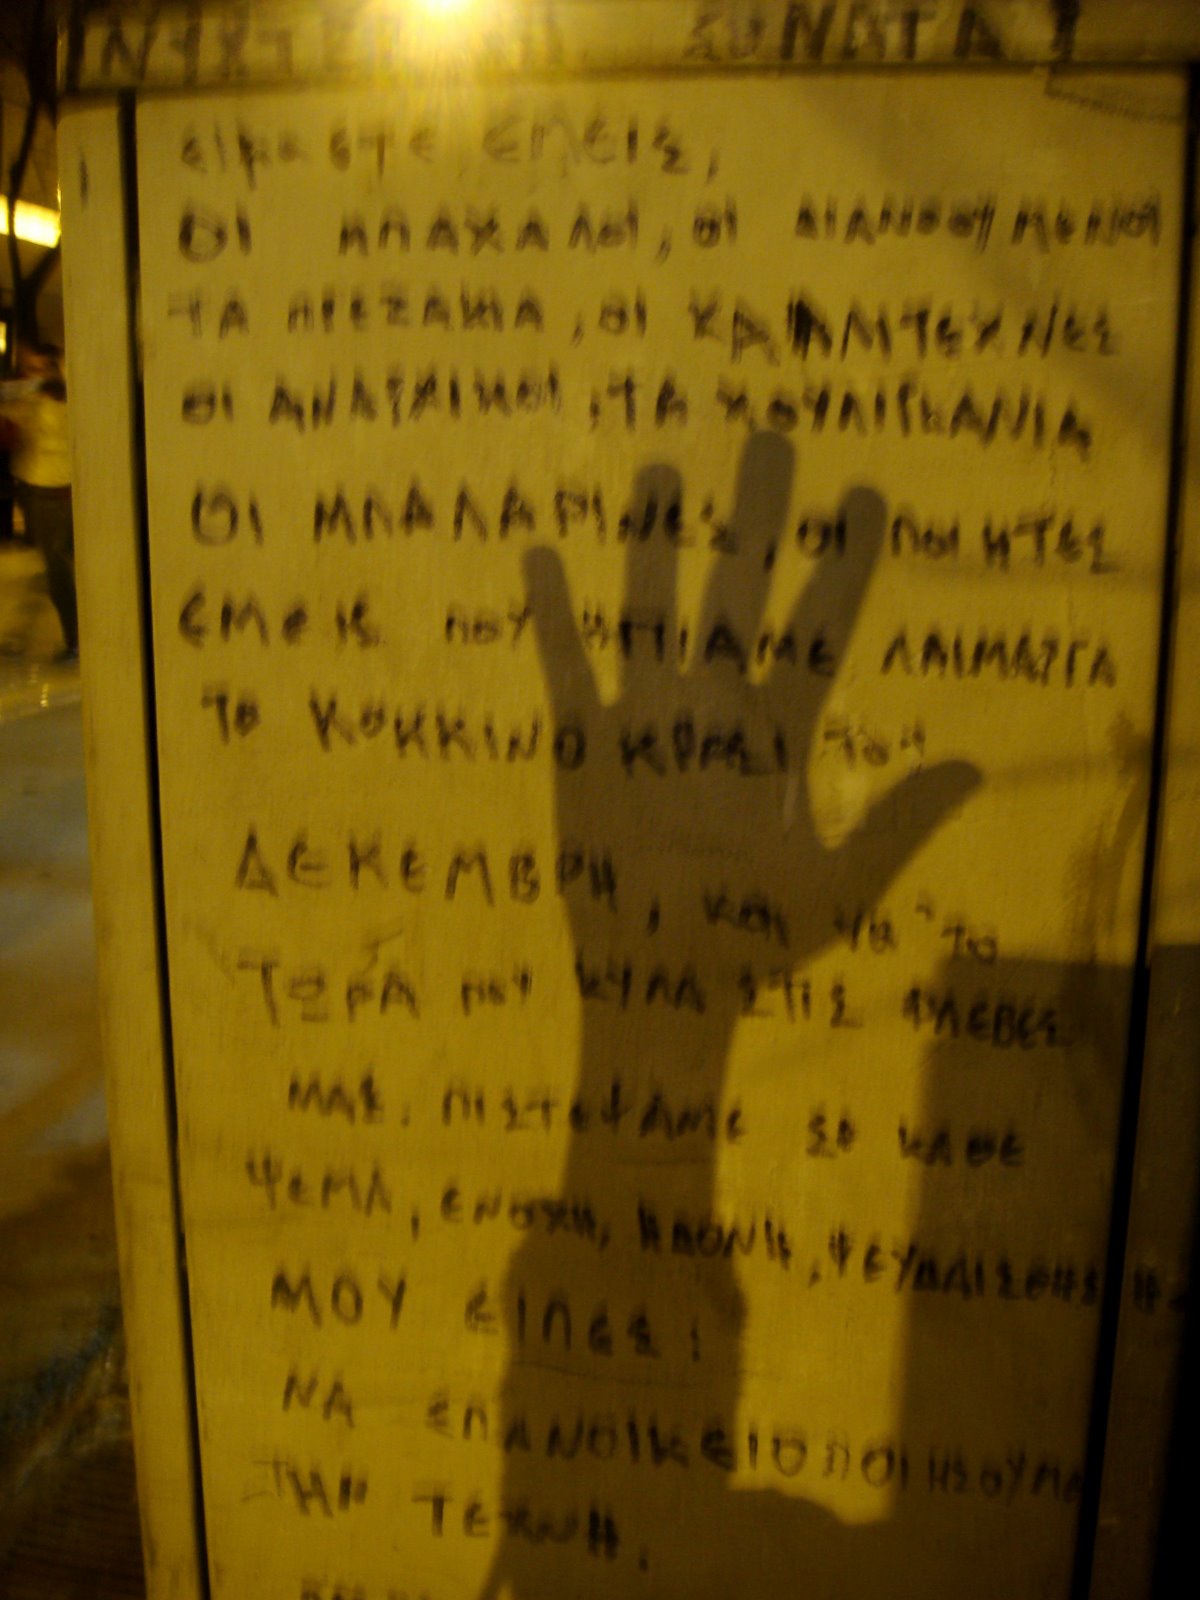 ΝΥΧΤΕΡΙΝΗ ΣΟΝΑΤΑ!
είμαστε ΕΜΕΙΣ,
ΟΙ ΜΠΑΧΑΛΟΙ, ΟΙ ΔΙΑΝΟΟΥΜΕΝΟΙ
ΤΑ ΠΡΕΖΑΚΙΑ, ΟΙ ΚΑΛΛΙΤΕΧΝΕΣ
ΟΙ ΑΝΑΡΧΙΚΟΙ, ΤΑ ΧΟΥΛΙΓΚΑΝΙΑ
ΟΙ ΜΠΑΛΑΡΙΝΕΣ, ΟΙ ΠΟΙΗΤΕΣ
ΕΜΕΙΣ ΠΟΥ ΗΠΙΑΜΕ ΛΑΙΜΑΡΓΑ
ΤΟ ΚΟΚΚΙΝΟ ΚΡΑΣΙ ΤΟΥ
ΔΕΚΕΜΒΡΗ, ΚΑΙ ΝΑ ΤΟ
ΤΩΡΑ ΠΟΥ ΚΥΛΑ ΣΤΙΣ ΦΛΕΒΕΣ
ΜΑΣ. ΠΙΣΤΕΨΑΜΕ ΣΕ ΚΑΘΕ
ΨΕΜΑ, ΕΝΟΧΗ, ΗΔΟΝΗ, ΨΕΥΔΑΙΣΘΗΣΗ
ΜΟΥ ΕΙΠΕΣ:
ΝΑ ΕΠΑΝΟΙΚΕΙΟΠΟΙΗΣΟΥΜΕ
ΤΗΝ ΤΕΧΝΗ.